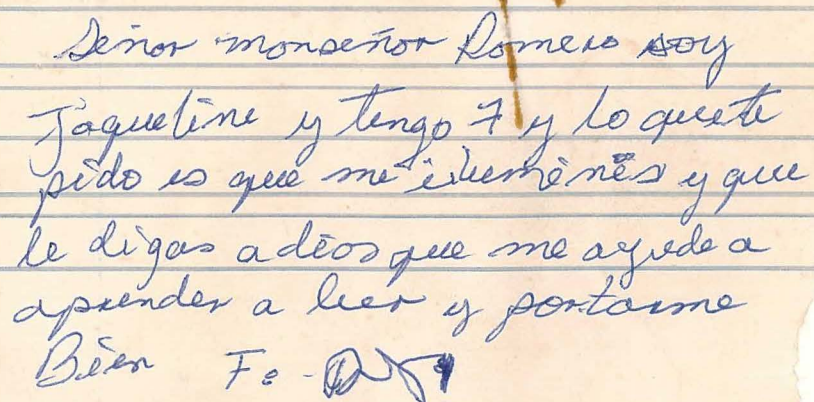 Señor monseñor Romero soy
Jaqueline y tengo 7 y lo que te
pido es que me ilumenes y que
le digas a dios que me ayude a
aprender a leer y portarme
Bien F.